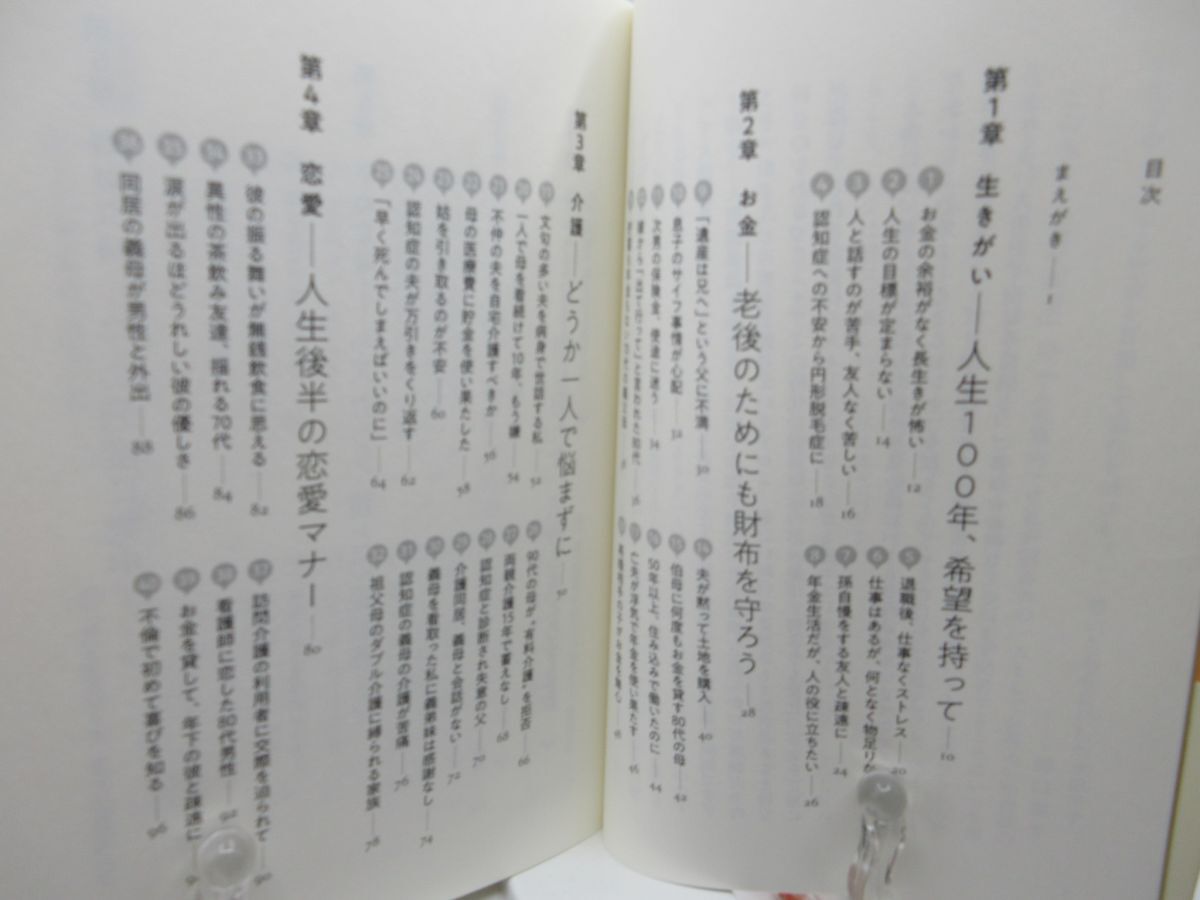 目次
まえがき——1
第1章 生きがい——人生100年、希望を持って——10
1 お金の余裕がなく長生きが怖い——12
2 人生の目標が定まらない——14
3 人と話すのが苦手、友人なく苦しい——16
4 認知症への不安から円形脱毛症に——18
5 退職後、仕事なくストレス——20
6 仕事はあるが、何となく物足りが
7 孫自慢をする友人と疎遠に——24
8 年金生活だが、人の役に立ちたい——26
第2章 お金——老後のためにも財布を守ろう——28
9 「遺産は兄へ」という父に不満——30
10 息子のサイフ事情が心配——32
次男の保険金、使途に迷う——34
から「出て行って」と言われた80代——36
14 夫が黙って土地を購入——40
15 伯母に何度もお金を貸す80代の母——42
16 50年以上、住み込みで働いたのに——44
亡夫が浮気で年金を使い果たす——46
第3章 介護——どうか一人で悩まずに——51
文句の多い夫を病身で世話する私——52
20 一人で母を看続けて10年、もう嫌——54
21 不仲の夫を自宅介護すべきか——56
22 母の医療費に貯金を使い果たした——58
23 姑を引き取るのが不安——60
24 認知症の夫が万引きをくり返す——62
25 「早く死んでしまえばいいのに」——64
26 90代の母が“有料介護”を拒否——66
27 両親介護15年で蓄えなし——68
28 認知症と診断され失意の父——70
29 介護同居、義母と会話がない——72
30 義母を看取った私に義弟妹は感謝なし——74
31 認知症の義母の介護が苦痛——76
32 祖父母のダブル介護に縛られる家族——78
第4章 恋愛——人生後半の恋愛マナー——80
33 彼の振る舞いが無銭飲食に思える——82
34 異性の茶飲み友達、揺れる70代——84
35 涙が出るほどうれしい彼の優しさ——86
36 同居の義母が男性と外出——88
37 訪問介護の利用者に交際を迫られて——90
38 看護師に恋した80代男性——92
39 お金を貸して、年下の彼と疎遠に
40 不倫で初めて喜びを知る——96